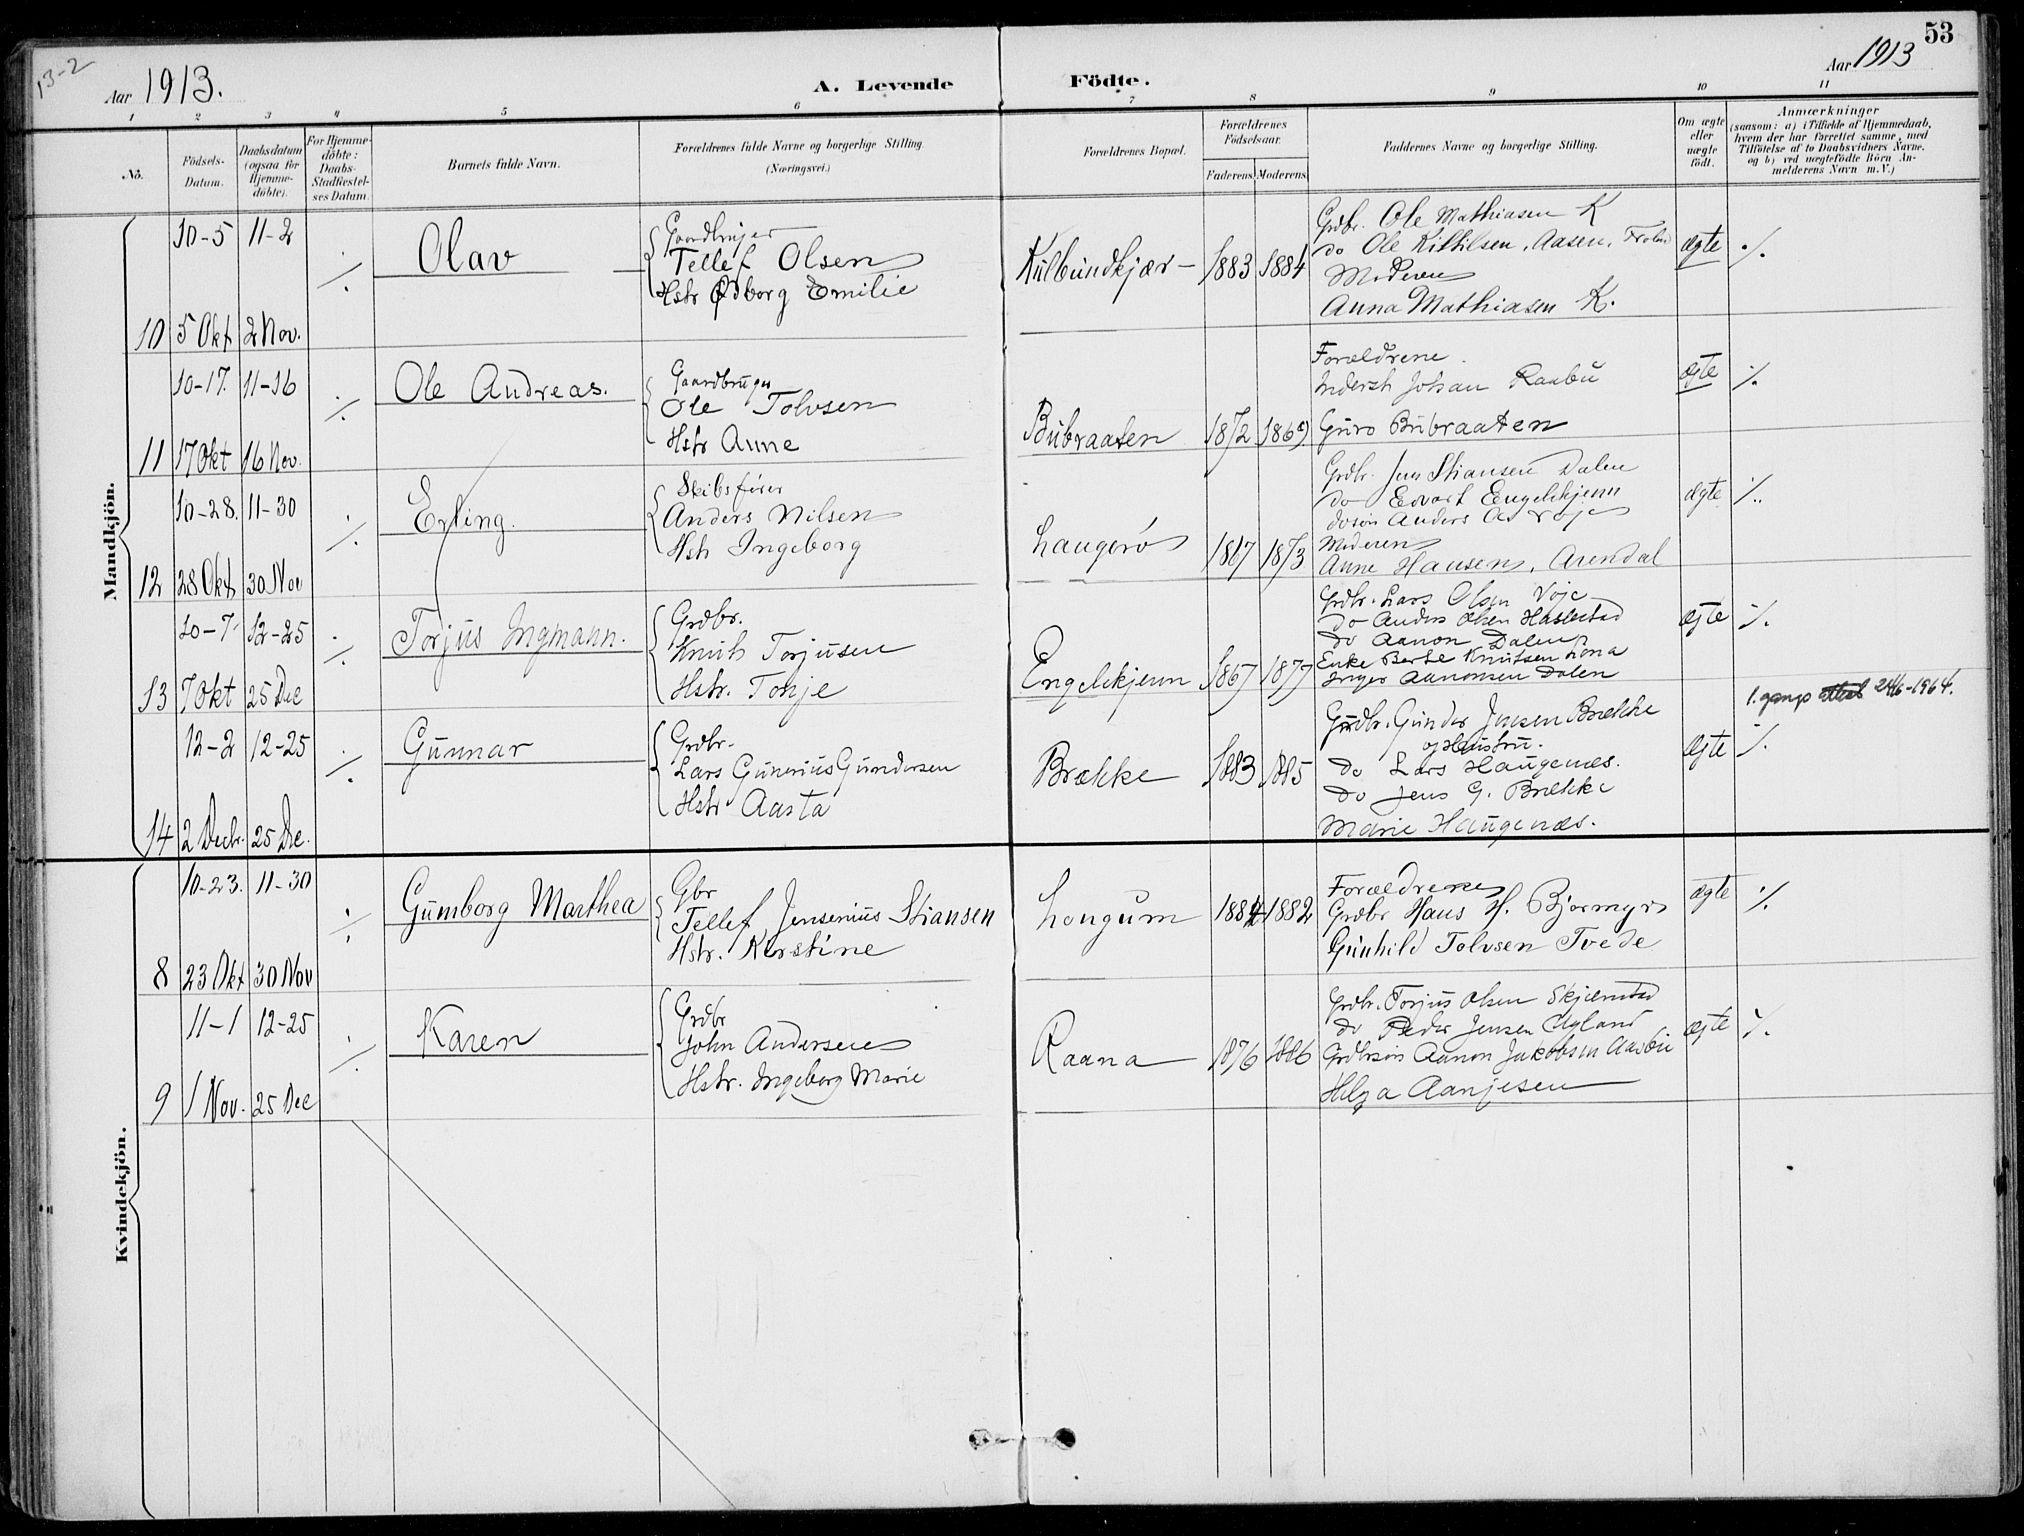 13-2
Aar 1913.
A. Levende Födte.
Aar 1913
53
1 2 3 4 5 6 7 8 9 10 11
No.
Födsels-Datum.
Daabsdatum (ogsaa for Hjemme-döbte).
For Hjemme-döbte: Daabs-Stadfæstel-ses Datum.
Barnets fulde Navn.
Forældrenes fulde Navne og borgerlige Stilling.
(Næringsvei.)
Forældrenes Bopæl.
Forældrenes Födselsaar.
Faderens. Moderens.
Faddernes Navne og borgerlige Stilling.
Om ægte eller uægte født.
Anmærkninger
(saasom: a) i Tilfælde af Hjemmedaab,
hvem der har forrettet samme, med
Tilföielse af to Daabsvidners Navne.
og b) ved uægtefödte Börn An-
melderens Navn m.V.)
Mandkjön.
10-5 11-2
10 5 Okt 2 Nov.
./.
Olav
Gaardbruger
Tellef Olsen
Hstr Odborg Emilie
Kulbundkjær - 1883 1884
Grdbr. Ole Mathiasen K
do Ole Kittilsen, Aasen,
Moderen
Anna Mathiasen K.
ægte ./.
10-17. 11-16
11 17 Okt 16 Nov.
./.
Ole Andreas.
Gaardbruger
Ole Tolvsen
Hstr Anne
Bubraaten 1872 1869
Forældrene.
Inderst Johan Raabu
Guro Bubraaten
ægte ./.
10-28. 11-30
12 28 Okt 30 Nov
./.
Erling.
Skibsfører
Anders Nilsen
Hstr Ingeborg
Langerø 1817 1873
Grdbr. Jens Stiansen Dalen
do Edvart Engelskjenn
dosøn Anders
Moderen
Anne Hansen, Arendal
ægte ./.
10-7 12-25
13 7 Okt 25 Dec
./.
Torjus Ingmann.
Grdbr.
Knut Torjusen
Hstr. Tonje
Engelskjenn 1867 1877
Grdbr. Lars Olsen Voje
do Anders Olsen Haslestad
do Aanon Dalen
Enke Berte Knutsen Lona
Inger Aanonsen Dalen
ægte ./.
12-2 12-25
14 2 Decbr. 25 Dec.
./.
Gunnar
Grdbr.
Lars Gunerius Gundersen
Hstr Aasta
Brække 1883 1885
Grdbr. Gunder Jensen Brække
og Hustru.
do Lars Haugenæs.
do Jens G. Brække
Marie Haugenæs.
ægte ./.
1. gangs 24/6-1964.
Kvindekjön.
10-23. 11-30
8 23 Okt 30 Nov
./.
Gumborg Marthea
Gbr
Tellef Jensenius Stiansen
Hstr. Kerstine
Longum 1884 1882
Forældrene
Grdbr Hans H. Bjormyr
Gunhild Tolvsen Tvede
ægte ./.
11-1 12-25
9 1 Nov. 25 Dec
./.
Karen
Grdbr
John Andersen
Hstr. Ingeborg Marie
Raana 1876 1886
Grdbr. Torjus Olsen Skjelmstad
do Peder Jensen Ugland
Grdbrsøn Aanon Jakobsen Aasbu
Helga Aanjesen
ægte ./.